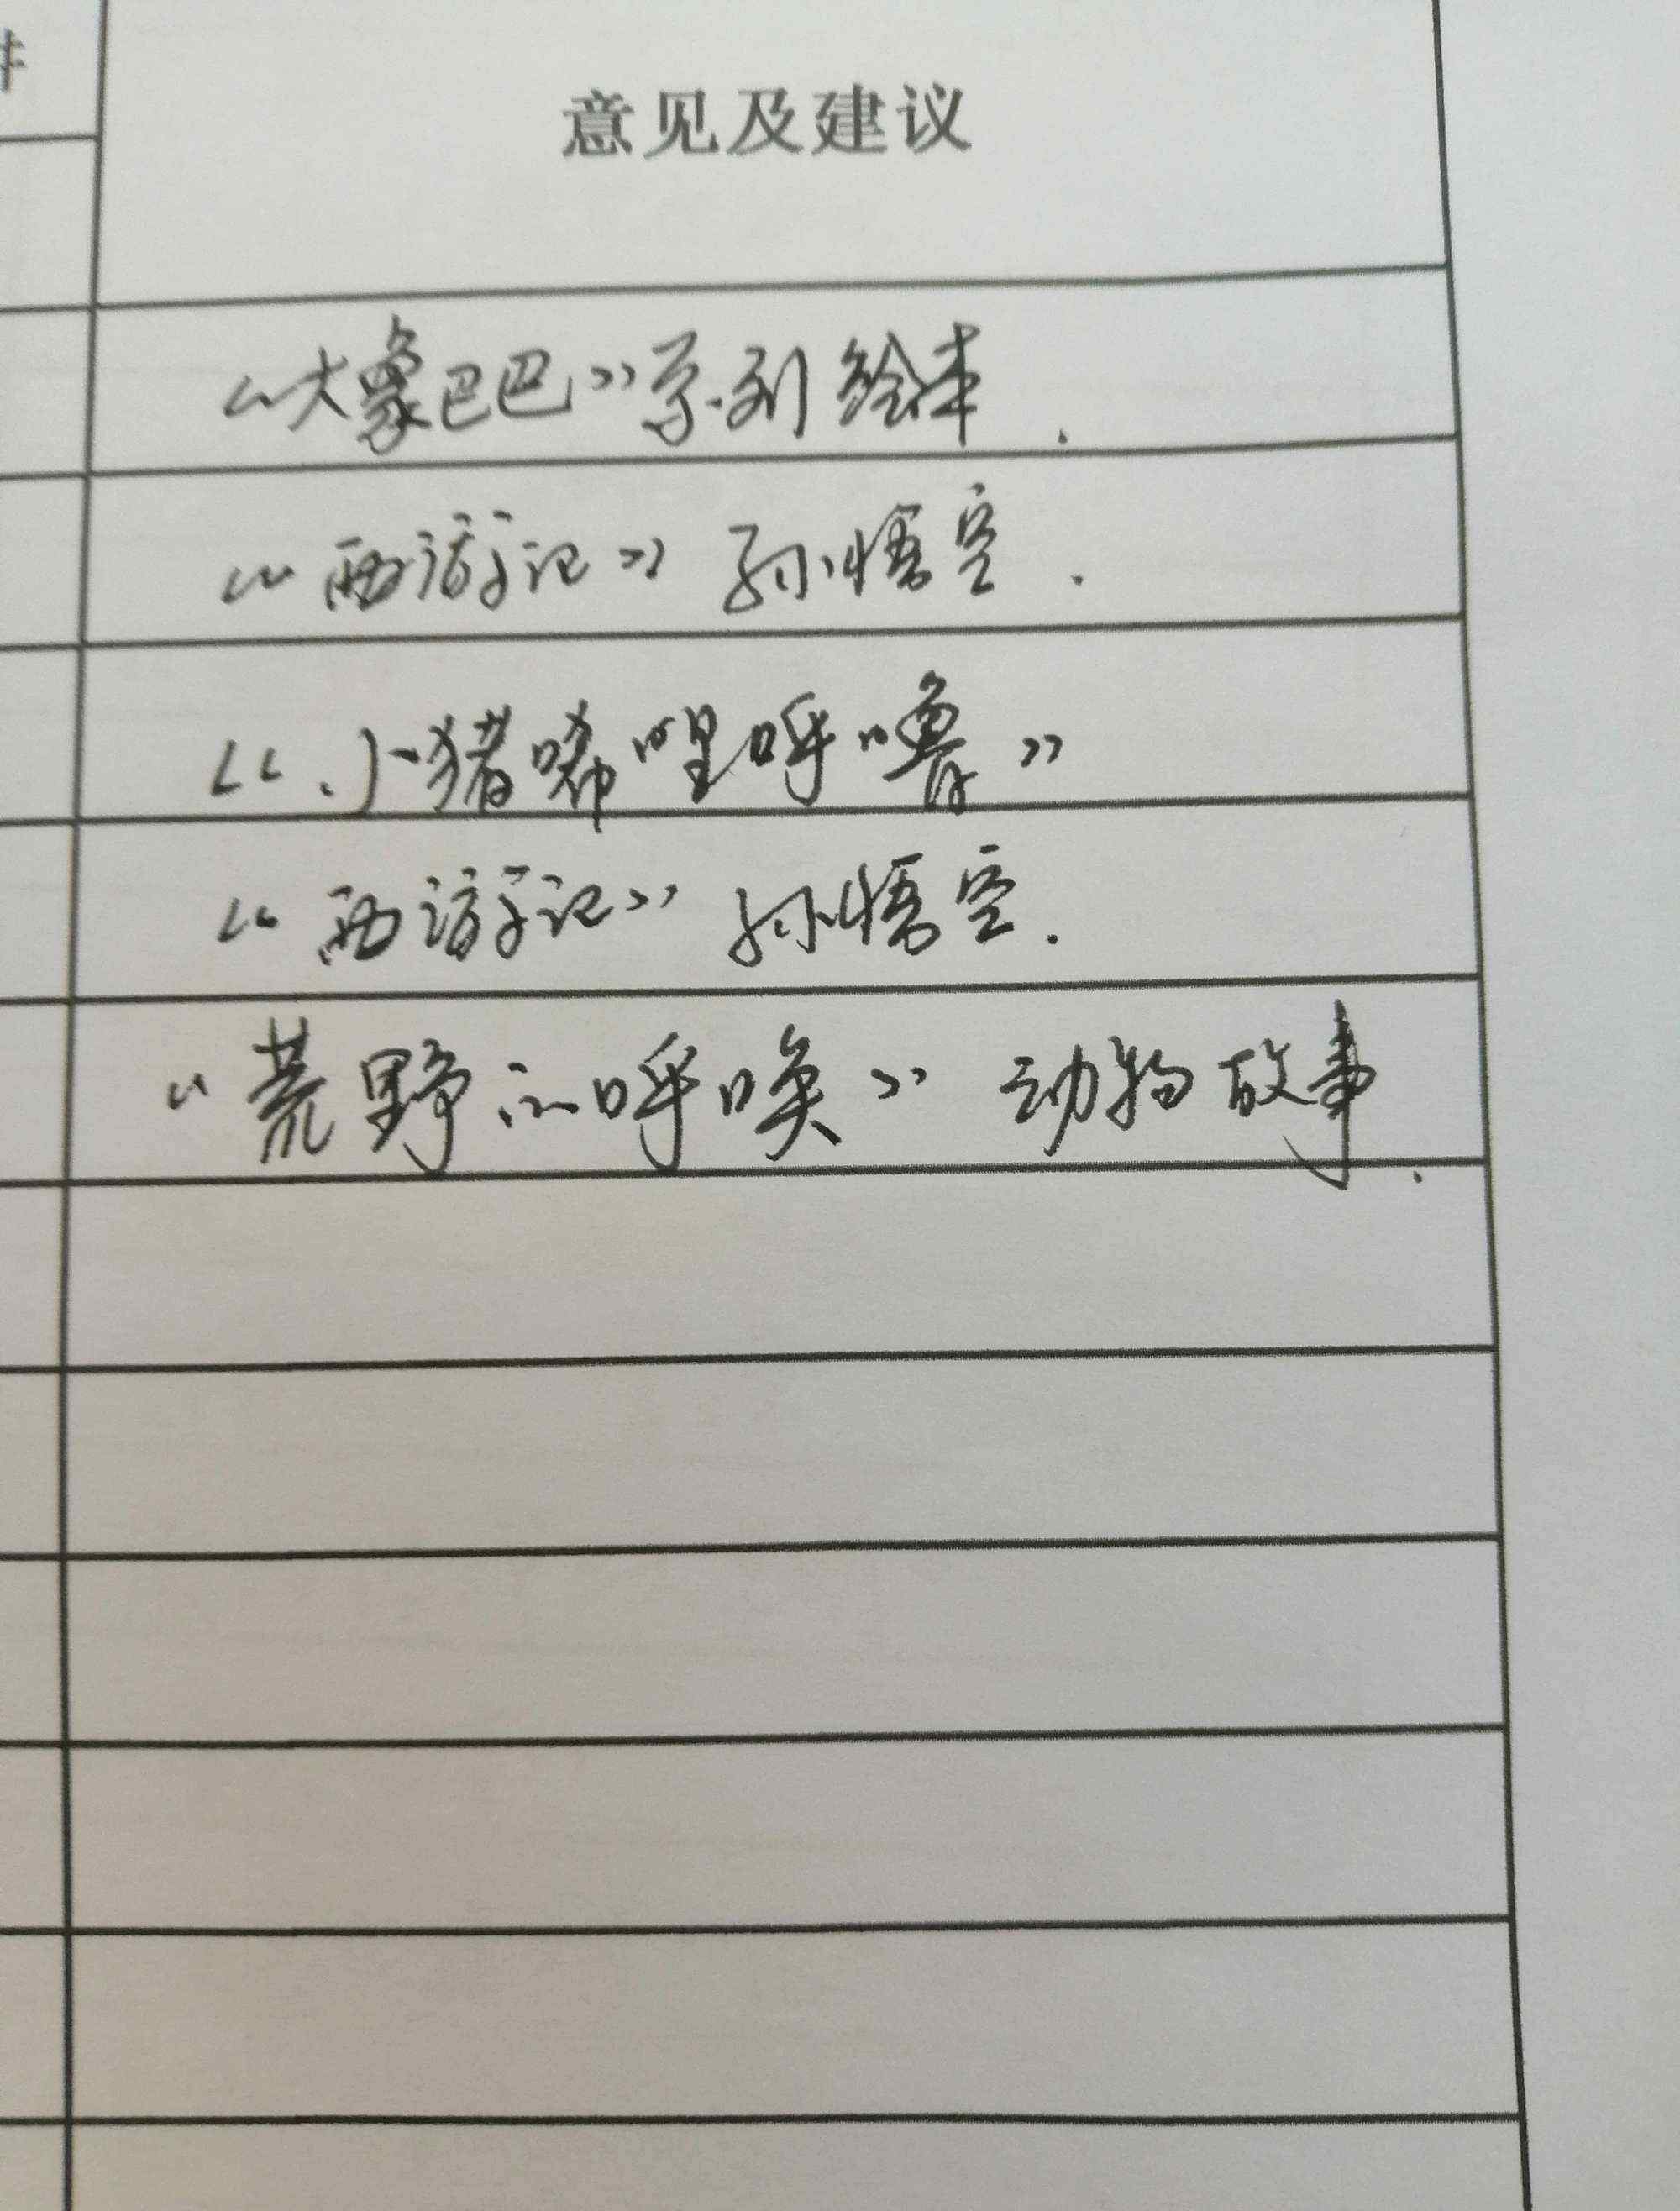 意见及建议
《大象巴巴》系列绘本.
《西游记》孙悟空.
《小猪唏哩呼噜》
《西游记》孙悟空.
《荒野的呼唤》动物故事.